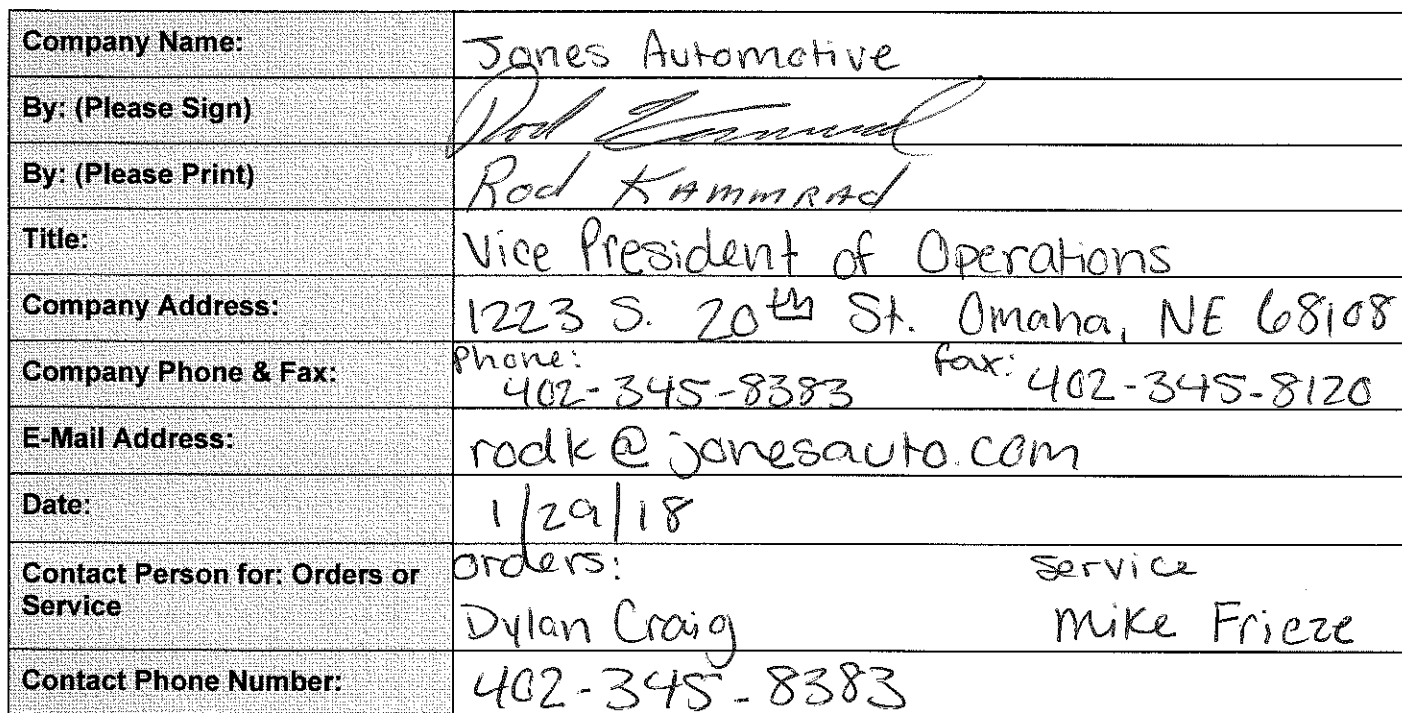 Company Name: Jones Automotive
By: (Please Sign) Rod Kammrad
By: (Please Print) Rod Kammrad
Title: Vice President of Operations
Company Address: 1223 S. 20th St. Omaha, NE 68108
Company Phone & Fax: Phone: 402-345-8383 fax: 402-345-8120
E-Mail Address: rodk@jonesauto.com
Date: 1/29/18
Contact Person for: Orders or Service
orders: service
Dylan Craig Mike Frieze
Contact Phone Number: 402-345-8383